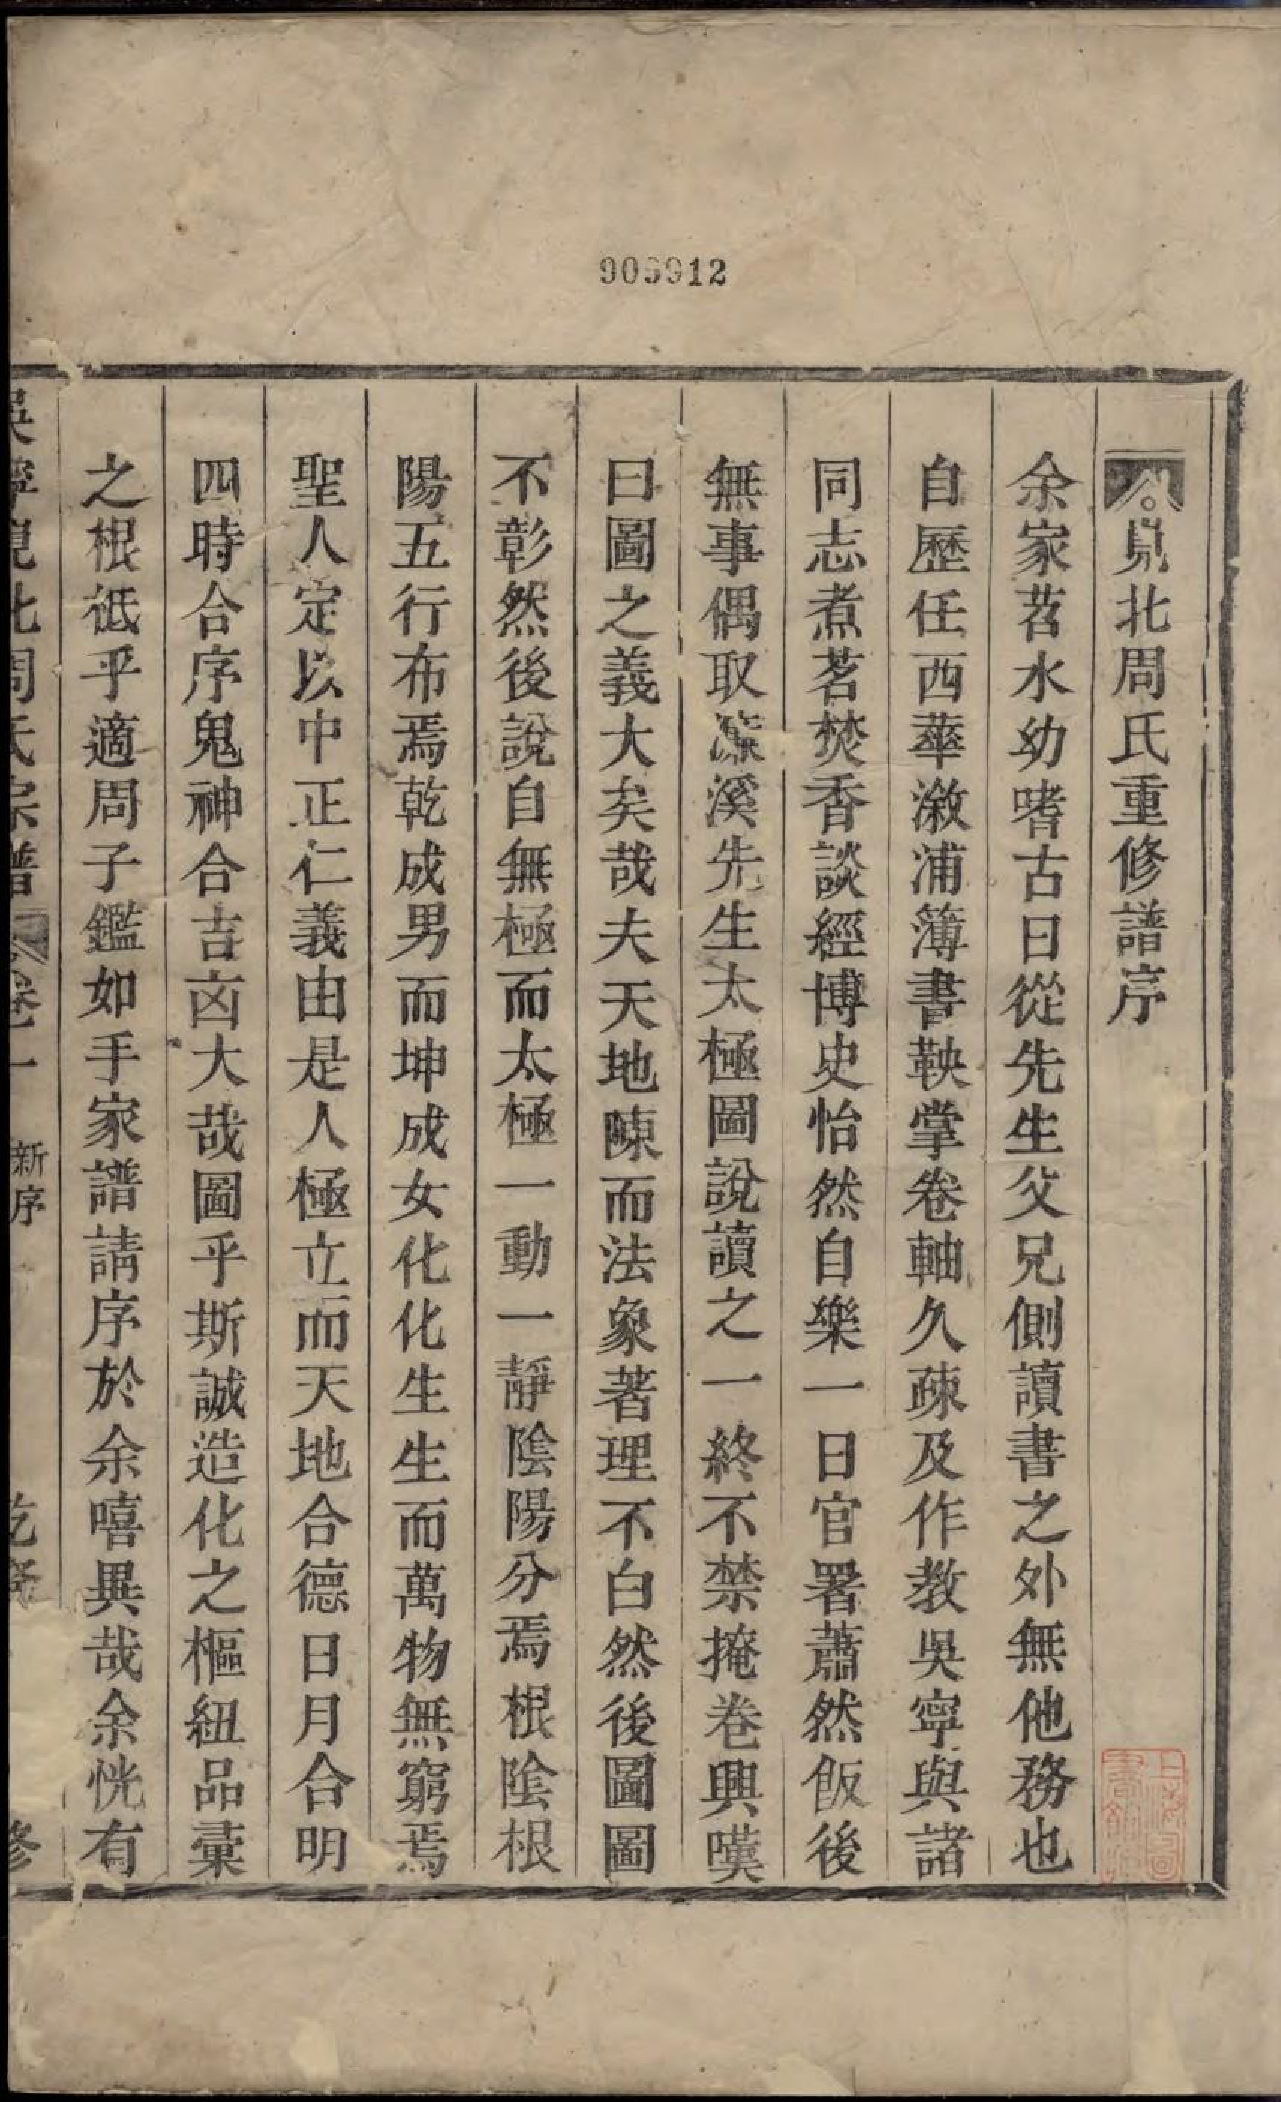 906912
峴北周氏重修譜序
余家苕水幼嗜古日從先生父兄側讀書之外無他務也
自歷任西華漵浦簿書鞅掌卷軸久疎及作教吳寧與諸
同志煮茗焚香談經博史怡然自樂一日官署蕭然飯後
無事偶取濂溪先生太極圖說讀之一終不禁掩卷興嘆
曰圖之義大矣哉夫天地陳而法象著理不白然後圖圖
不彰然後說自無極而太極一動一靜陰陽分焉根陰根
陽五行布焉乾成男而坤成女化化生生而萬物無窮焉
聖人定以中正仁義由是人極立而天地合德日月合明
四時合序鬼神合吉凶大哉圖乎斯誠造化之樞紐品彙
之根柢乎適周子鑑如手家譜請序於余嘻異哉余恍有
吳寧峴北周氏宗譜 卷一 新序 乾隆 修
上海圖書館藏